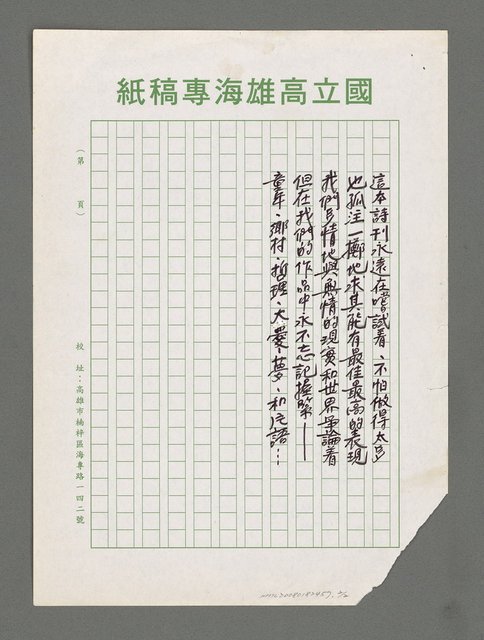 國立高雄海專稿紙
這本詩刊永遠在嚐試着、不怕做得太多
也孤注一擲地求其能有最佳最高的表現
我們多情地與無情的現實和世界爭論着
但在我們的作品中永不忘記擁擠——
童年、鄉村、哲理、大愛、夢、和凡語……
(第　頁)
校　址：高雄市楠梓區海專路一四二號
NMTL20080182457. 2/2